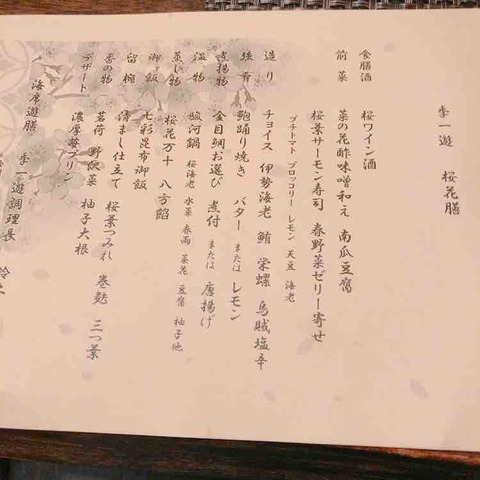 季一遊　桜花膳
食膳酒　桜ワイン酒
前菜　菜の花酢味噌和え　南瓜豆腐
桜葉サーモン寿司　春野菜ゼリー寄せ
プチトマト　ブロッコリー　レモン　天豆　海老
造り　チョイス　伊勢海老　鮪　栄螺　烏賊塩辛
強肴　鮑踊り焼き　バター　または　レモン
直揚物　金目鯛お選び　煮付　または　唐揚げ
温物　駿河鍋　桜海老　水菜　春雨　菜花　豆腐　柚子他
蒸し物　桜花万十　八方餡
御飯　七彩昆布御飯
留椀　清まし仕立て　桜葉つみれ　巻麩　三つ葉
香の物　茗荷　野沢菜　柚子大根
デザート　濃厚夢プリン
海席遊膳　季一遊調理長